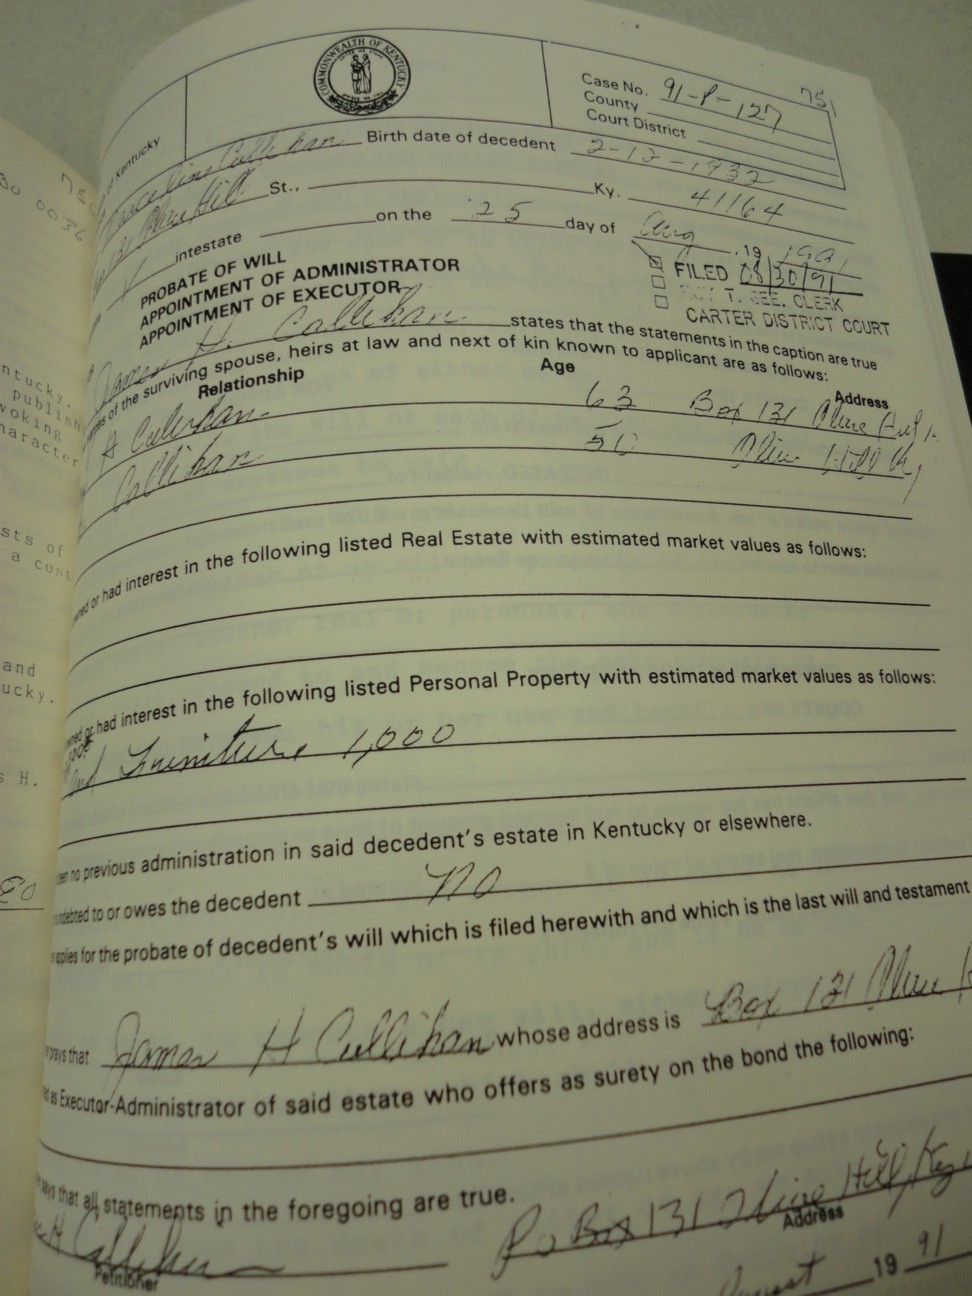 COMMONWEALTH OF KENTUCKY
751
Case No. 91-P-127
County
Court District
of Kentucky
Callihan Birth date of decedent 2-12-1932
Olive Hill St., Ky. 41164
X intestate on the 25 day of Aug, 19 1991
PROBATE OF WILL
APPOINTMENT OF ADMINISTRATOR
APPOINTMENT OF EXECUTOR
FILED 08/30/91
T. GEE, CLERK
CARTER DISTRICT COURT
James H. Callihan states that the statements in the caption are true
of the surviving spouse, heirs at law and next of kin known to applicant are as follows:
Relationship Age Address
H Callihan 63 Box 131 Olive Hill
Callihan 50 Olive Hill Ky
or had interest in the following listed Real Estate with estimated market values as follows:
or had interest in the following listed Personal Property with estimated market values as follows:
and Furniture 1,000
no previous administration in said decedent's estate in Kentucky or elsewhere.
indebted to or owes the decedent no
applies for the probate of decedent's will which is filed herewith and which is the last will and testament
prays that James H Callihan whose address is Box 131 Olive
as Executor-Administrator of said estate who offers as surety on the bond the following:
says that all statements in the foregoing are true.
H Callihan Po Box 131 Olive Hill, Ky
Petitioner Address
August 19 91